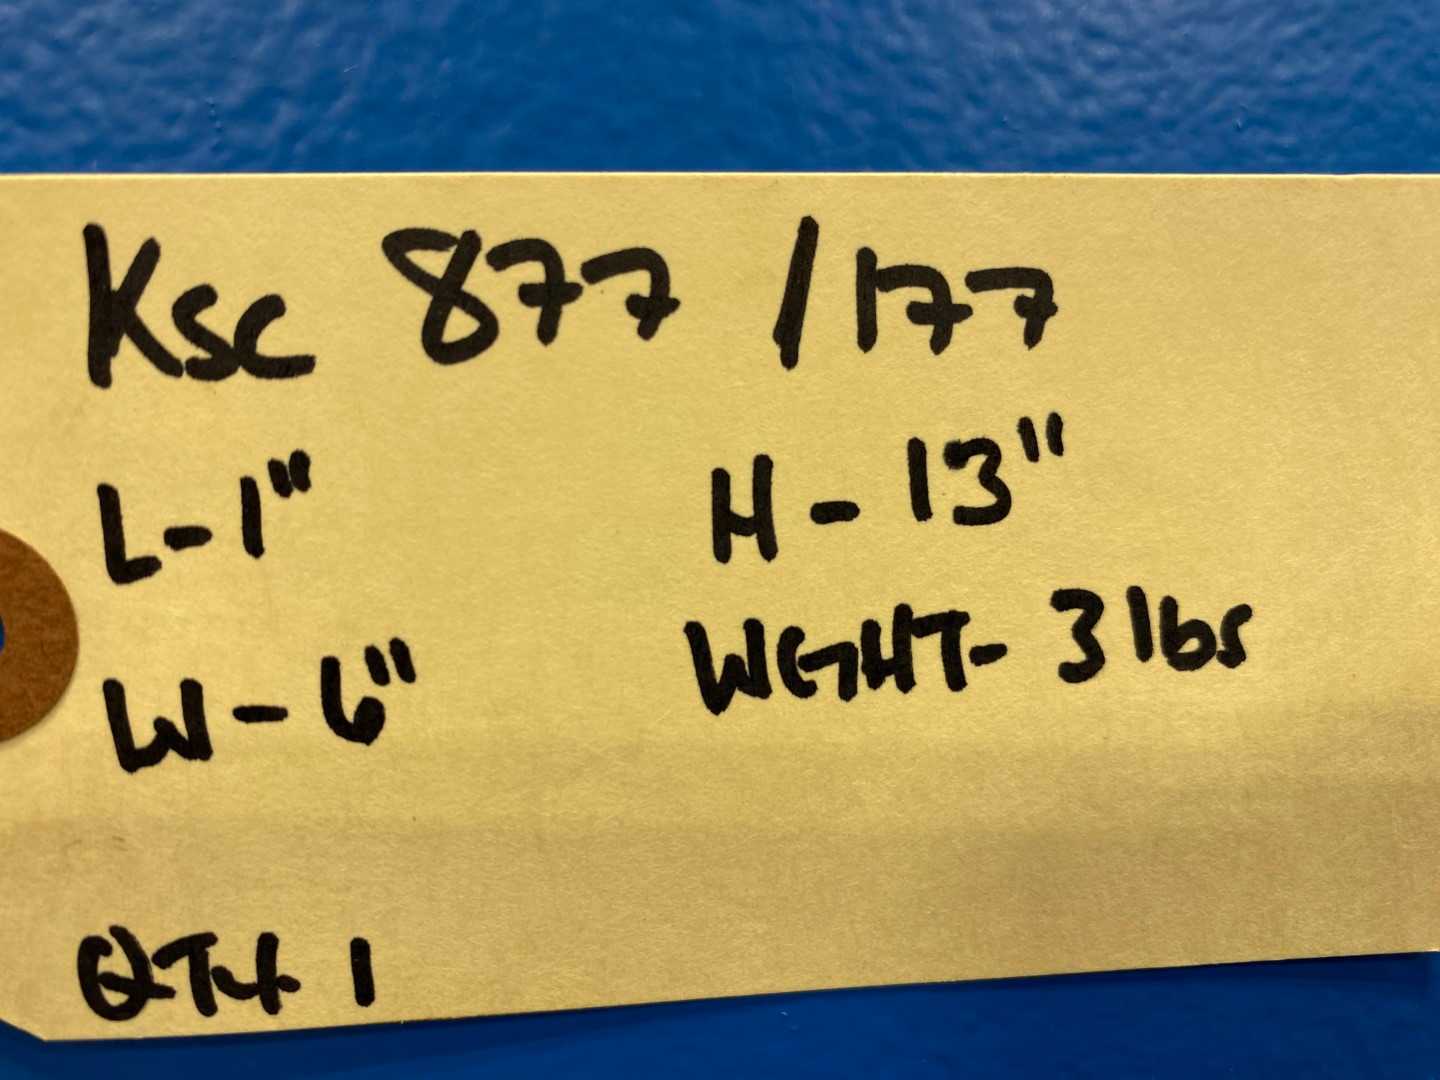 Ksc 877 /177
L-1" H-13"
W-6" WGHT- 3 lbs
QTY 1